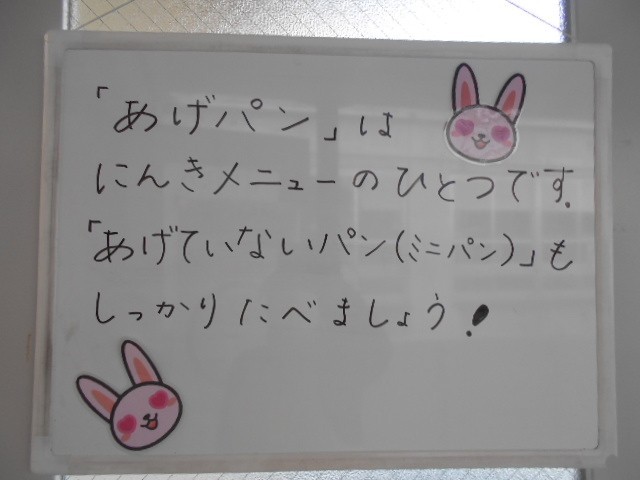 「あげパン」は
にんきメニューのひとつです.
「あげていないパン(ミニパン)」も
しっかりたべましょう!